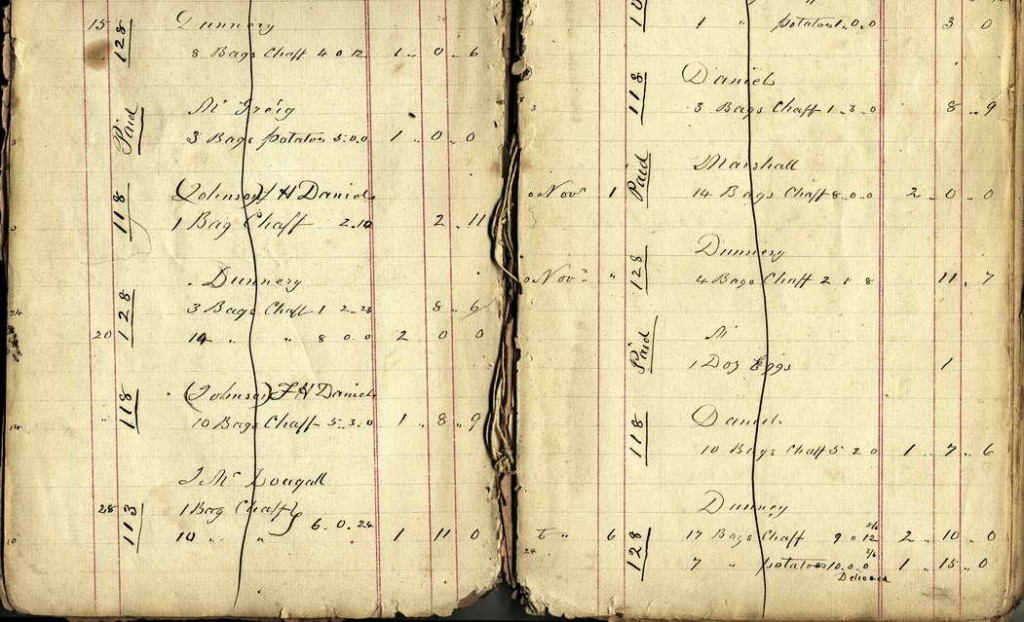 15 128 Dunnery
8 Bags Chaff 4 0 12 1 .. 0 .. 6
Paid Mr Greig
3 Bags potatoes 5.0.0 1 .. 0 .. 0
118 (Johnson) H Daniels
1 Bag Chaff 2.10 2 .. 11
128 Dunnery
3 Bags Chaff 1 2.23 8 .. 6
20 14 " " 8 0 0 2 0 0
118 (Johnson) F H Daniels
10 Bags Chaff 5..3.0 1 .. 8 .. 9
113 J McDougall
28 1 Bag Chaff
10 " " 6.0.24 1 11 0
1 " potatoes 1.0.0 3 0
118 Daniels
3 Bags Chaff 1.3.0 8 .. 9
Paid Marshall
Nov 1 14 Bags Chaff 8.0.0 2 .. 0 .. 0
128 Dunnery
Nov " 4 Bags Chaff 2 1 8 11 .. 7
Paid M
1 Doz Eggs 1
118 Daniels
10 Bags Chaff 5 2 0 1 .. 7 .. 6
128 Dunney
" 6 17 Bags Chaff 9 0 12 2 .. 10 .. 0
7 " potatoes 10.0.0 1 .. 15 .. 0